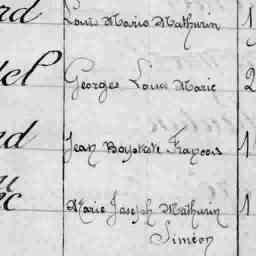 rd Louis Marie Mathurin 1
del Georges Louis Marie 2
nd Jean Baptiste François 1
Marie Joseph Mathurin 1
Siméon